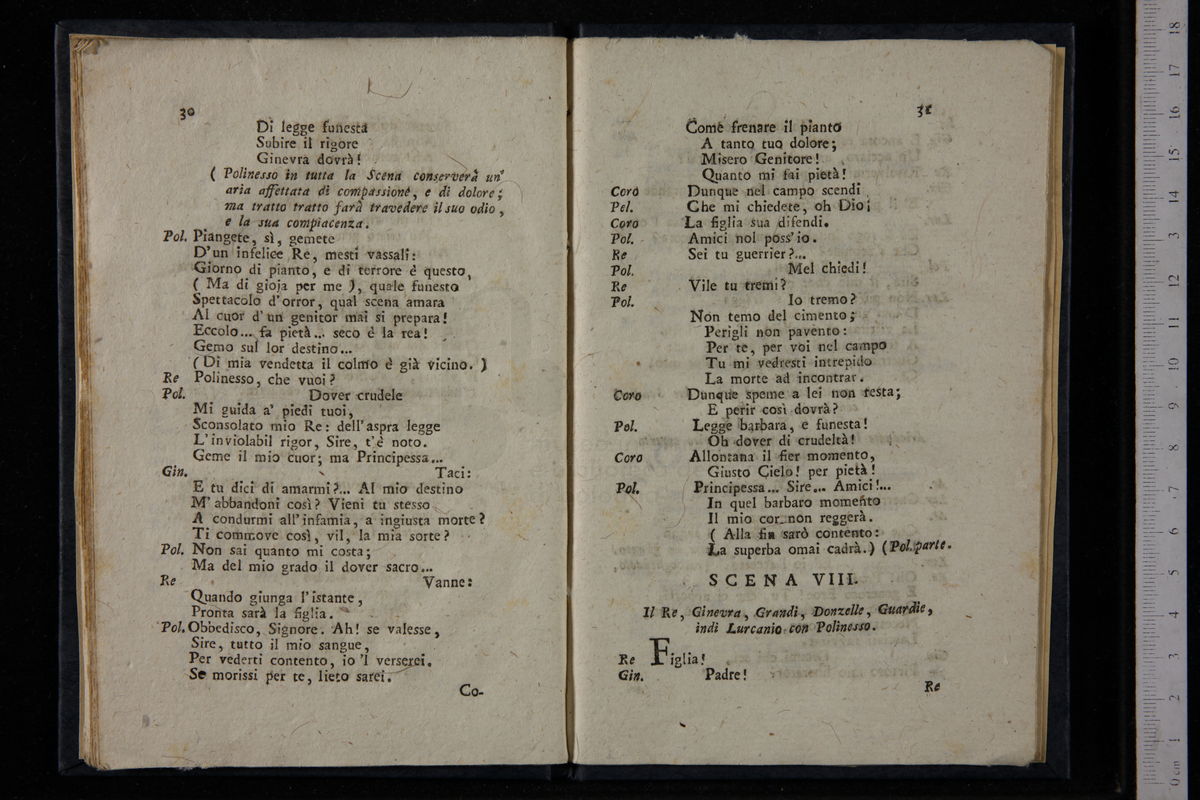 30
Di legge funesta
Subire il rigore
Ginevra dovrà!
( Polinesso in tutta la Scena conserverà un'
aria affettata di compassione, e di dolore;
ma tratto tratto farà travedere il suo odio,
e la sua compiacenza.
Pol. Piangete, sì, gemete
D'un infelice Re, mesti vassalli:
Giorno di pianto, e di terrore è questo,
( Ma di gioja per me ), quale funesto
Spettacolo d'orror, qual scena amara
Al cuor d'un genitor mai si prepara!
Eccolo... fa pietà... seco è la rea!
Gemo sul lor destino...
( Di mia vendetta il colmo è già vicino. )
Re Polinesso, che vuoi?
Pol. Dover crudele
Mi guida a' piedi tuoi,
Sconsolato mio Re: dell'aspra legge
L'inviolabil rigor, Sire, t'è noto.
Geme il mio cuor; ma Principessa...
Gin. Taci:
E tu dici di amarmi?... Al mio destino
M'abbandoni così? Vieni tu stesso
A condurmi all'infamia, a ingiusta morte?
Ti commove così, vil, la mia sorte?
Pol. Non sai quanto mi costa;
Ma del mio grado il dover sacro...
Re Vanne:
Quando giunga l'istante,
Pronta sarà la figlia.
Pol. Obbedisco, Signore. Ah! se valesse,
Sire, tutto il mio sangue,
Per vederti contento, io 'l verserei.
Se morissi per te, lieto sarei.
Co-
31
Come frenare il pianto
A tanto tuo dolore;
Misero Genitore!
Quanto mi fai pietà!
Coro Dunque nel campo scendi
Pol. Che mi chiedete, oh Dio!
Coro La figlia sua difendi.
Pol. Amici nol poss'io.
Re Sei tu guerrier?...
Pol. Mel chiedi!
Re Vile tu tremi?
Pol. Io tremo?
Non temo del cimento;
Perigli non pavento:
Per te, per voi nel campo
Tu mi vedresti intrepido
La morte ad incontrar.
Coro Dunque speme a lei non resta;
E perir così dovrà?
Pol. Legge barbara, e funesta!
Oh dover di crudeltà!
Coro Allontana il fier momento,
Giusto Cielo! per pietà!
Pol. Principessa... Sire... Amici!...
In quel barbaro momento
Il mio cor non reggerà.
( Alla fin sarò contento:
La superba omai cadrà.) (Pol. parte.
SCENA VIII.
Il Re, Ginevra, Grandi, Donzelle, Guardie,
indi Lurcanio con Polinesso.
Re Figlia!
Gin. Padre!
Re
0 cm 1 2 3 4 5 6 7 8 9 10 11 12 13 14 15 16 17 18